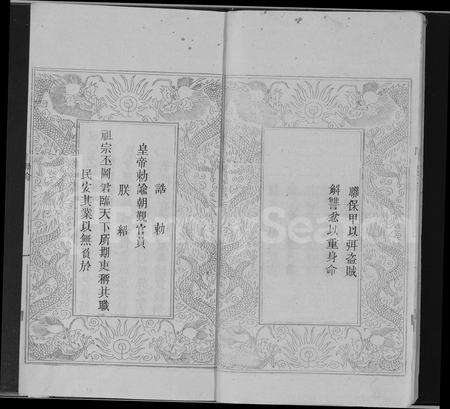 聯保甲以弭盜賊
解讐忿以重身命
誥勅
皇帝勅諭朝覲官員
朕紹
祖宗丕圖君臨天下所期吏稱其職
民安其業以無負於
FamilySearch